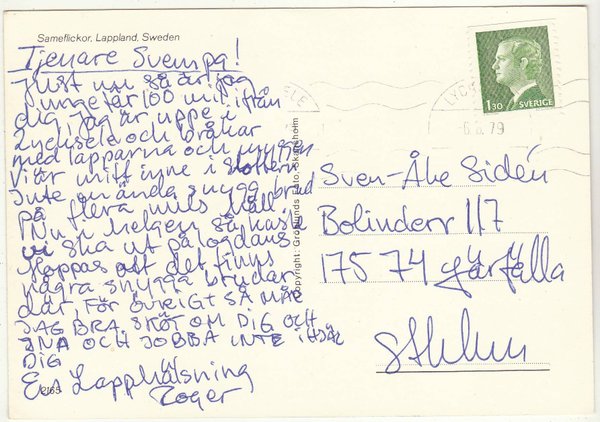 Sameflickor, Lappland, Sweden
Tjenare Svempa!
Just nu så är jag
ungefär 100 mil ifrån
dig, jag är uppe i
Lycksele och bråkar
med lapparna och myggen
Vi är mitt inne i
Inte en ända snygg brud
på flera mils håll.
Nu i helgen så
vi ska ut på logdans
Hoppas att det finns
några snygga brudar
där, FÖR ÖVRIGT SÅ MÅR
JAG BRA. SKÖT OM DIG OCH
OCH JOBBA INTE IHJÄL
DIG
En Lapphälsning
Roger
2165
Copyright: Grönlunds Foto, Skansholm
1.30 SVERIGE
LYC
ELE
6.8.79
Sven-Åke Sidén
Bolinderv 117
175 74 Järfälla
Sthlm